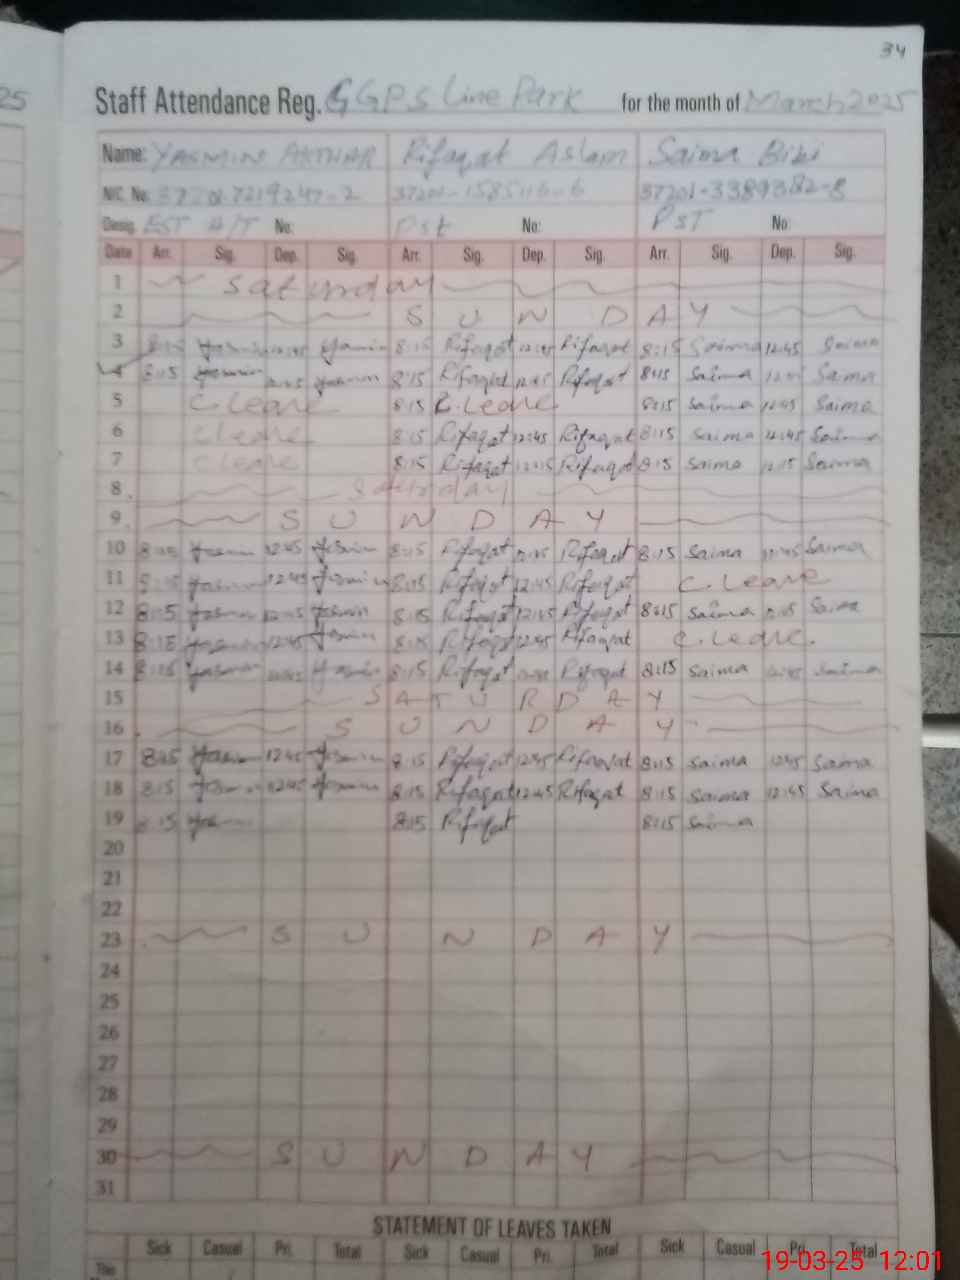 34
25
Staff Attendance Reg. GGPS Line Park for the month of March 2025
Name: YASMIN AKTHAR Rifaqat Aslam Saima Bibi
NIC. No. 37201-7219247-2 37201-1585116-6 37201-3389382-8
Desig. EST H/T No: Pst No: PST No:
Date Arr. Sig. Dep. Sig. Arr. Sig. Dep. Sig. Arr. Sig. Dep. Sig.
1 Saturday
2 SUNDAY
3 8:15 Yasmin 12:45 Yasmin 8:15 Rifaqat 12:45 Rifaqat 8:15 Saima 12:45 Saima
4 8:15 Yasmin 12:45 Yasmin 8:15 Rifaqat 12:45 Rifaqat 8:15 Saima 12:45 Saima
5 C.Leave 8:15 C.Leave 8:15 Saima 12:45 Saima
6 C Leave 8:15 Rifaqat 12:45 Rifaqat 8:15 Saima 12:45 Saima
7 C Leave 8:15 Rifaqat 12:45 Rifaqat 8:15 Saima 12:45 Saima
8 Saturday
9 SUNDAY
10 8:15 Yasmin 12:45 Yasmin 8:15 Rifaqat 12:45 Rifaqat 8:15 Saima 12:45 Saima
11 8:15 Yasmin 12:45 Yasmin 8:15 Rifaqat 12:45 Rifaqat C.Leave
12 8:15 Yasmin 12:45 Yasmin 8:15 Rifaqat 12:45 Rifaqat 8:15 Saima 12:45 Saima
13 8:15 Yasmin 12:45 Yasmin 8:15 Rifaqat 12:45 Rifaqat C.Leave.
14 8:15 Yasmin 12:45 Yasmin 8:15 Rifaqat 12:45 Rifaqat 8:15 Saima 12:45 Saima
15 SATURDAY
16 SUNDAY
17 8:15 Yasmin 12:45 Yasmin 8:15 Rifaqat 12:45 Rifaqat 8:15 Saima 12:45 Saima
18 8:15 Yasmin 12:45 Yasmin 8:15 Rifaqat 12:45 Rifaqat 8:15 Saima 12:45 Saima
19 8:15 8:15 Rifaqat 8:15 Saima
20
21
22
23 SUNDAY
24
25
26
27
28
29
30 SUNDAY
31
STATEMENT OF LEAVES TAKEN
Sick Casual Pri. Total Sick Casual Pri. Total Sick Casual Pri. Total
19-03-25 12:01